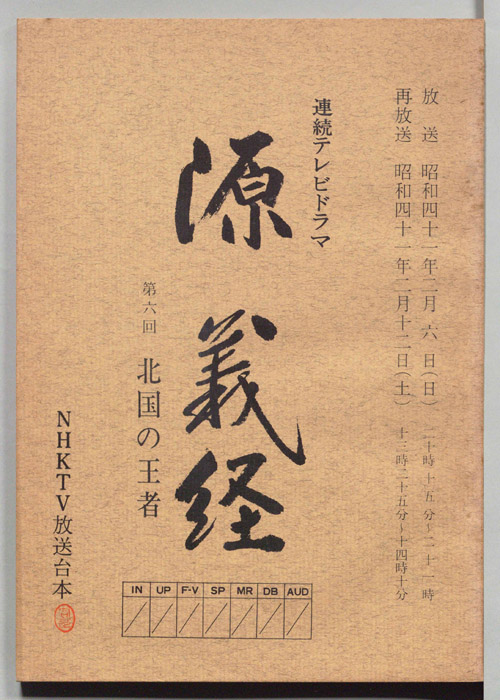 放送 昭和四十一年二月六日(日) 二十時十五分～二十一時
再放送 昭和四十一年二月十二日(土) 十三時二十五分～十四時十分
連続テレビドラマ
源義経
第六回 北国の王者
NHKTV放送台本
IN UP F-V SP MR DB AUD